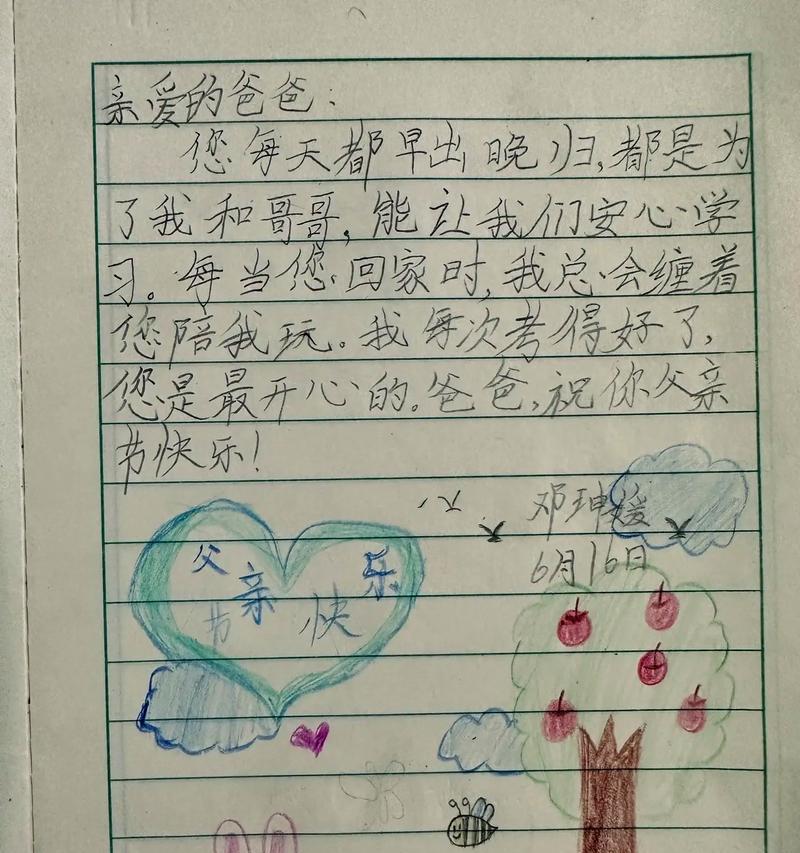 亲爱的爸爸:
您每天都早出晚归,都是为
了我和哥哥,能让我们安心学
习。每当您回家时,我总会缠着
您陪我玩。我每次考得好了,
您是最开心的。爸爸,祝你父亲
节快乐!
邓珅媛
6月16日
父亲节快乐